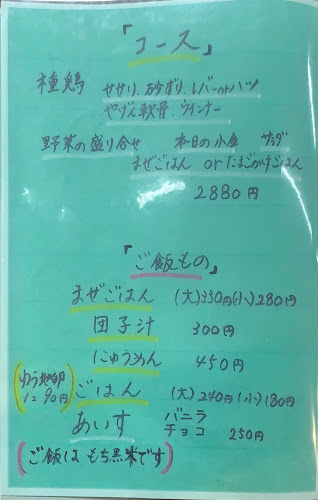 「コース」
種鶏 ササリ、砂ずり、レバーorハツ
やげん軟骨、ウインナー
野菜の盛り合せ 本日の小金 サラダ
まぜごはん orたまごかけごはん
2880円
「ご飯もの」
まぜごはん (大)330円(小)280円
団子汁 300円
にゅうめん 450円
ごはん (大)240円(小)180円
1コ90円
あいす バニラ
チョコ 250円
(ご飯は もち黒米です)